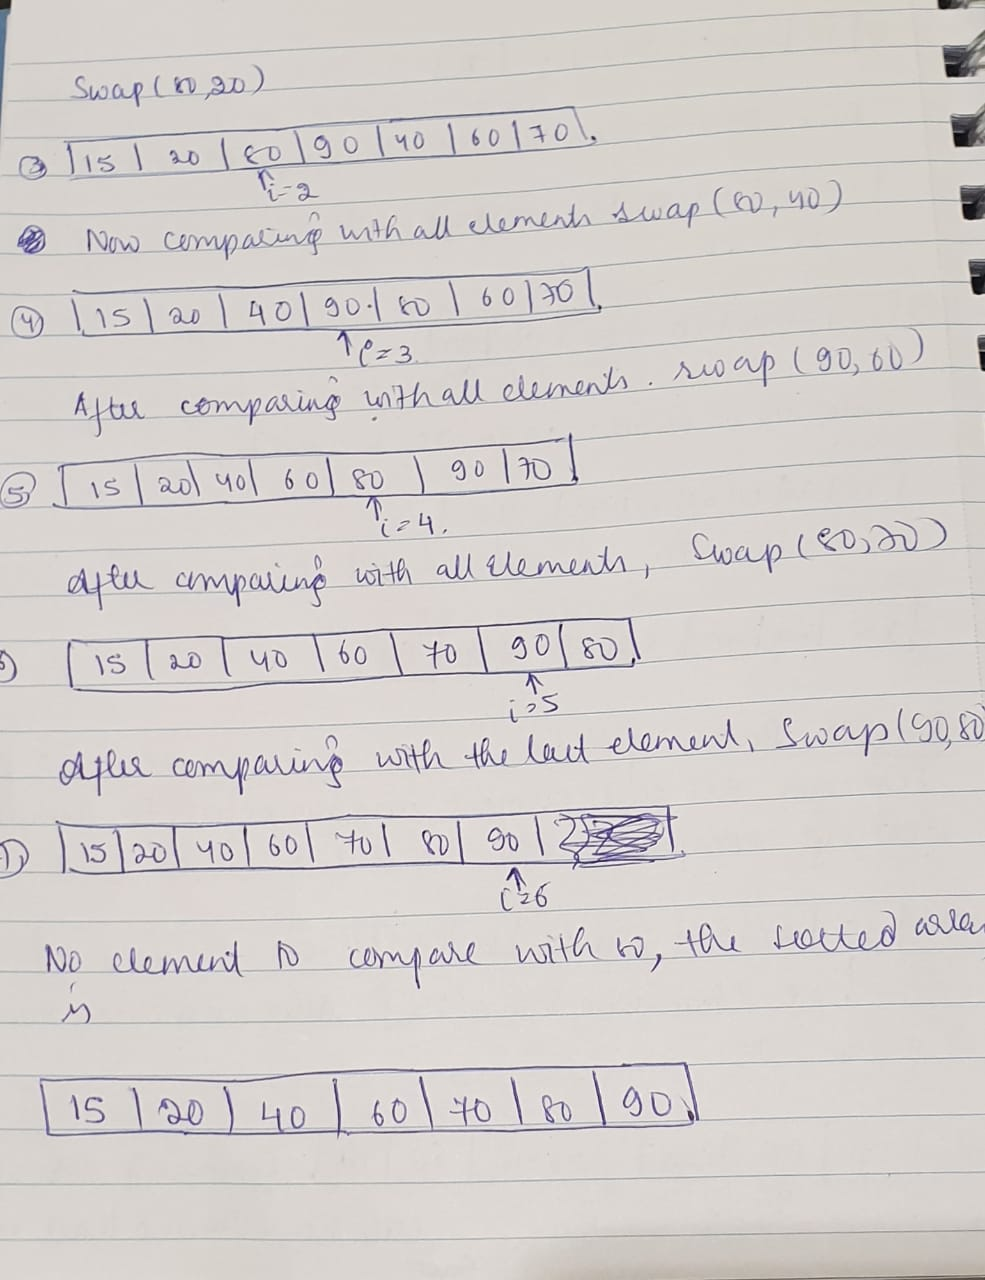 Swap (80,20)
③ 15 | 20 | 80 | 90 | 40 | 60 | 70
i=2
Now comparing with all elements swap (80, 40)
④ 15 | 20 | 40 | 90 | 80 | 60 | 70
i=3
After comparing with all elements. swap (90, 60)
⑤ 15 | 20 | 40 | 60 | 80 | 90 | 70
i=4.
After comparing with all elements, Swap (80,70)
15 | 20 | 40 | 60 | 70 | 90 | 80
i=5
After comparing with the last element, Swap (90,80
15 | 20 | 40 | 60 | 70 | 80 | 90
i=6
No element to compare with so, the sorted
is
15 | 20 | 40 | 60 | 70 | 80 | 90